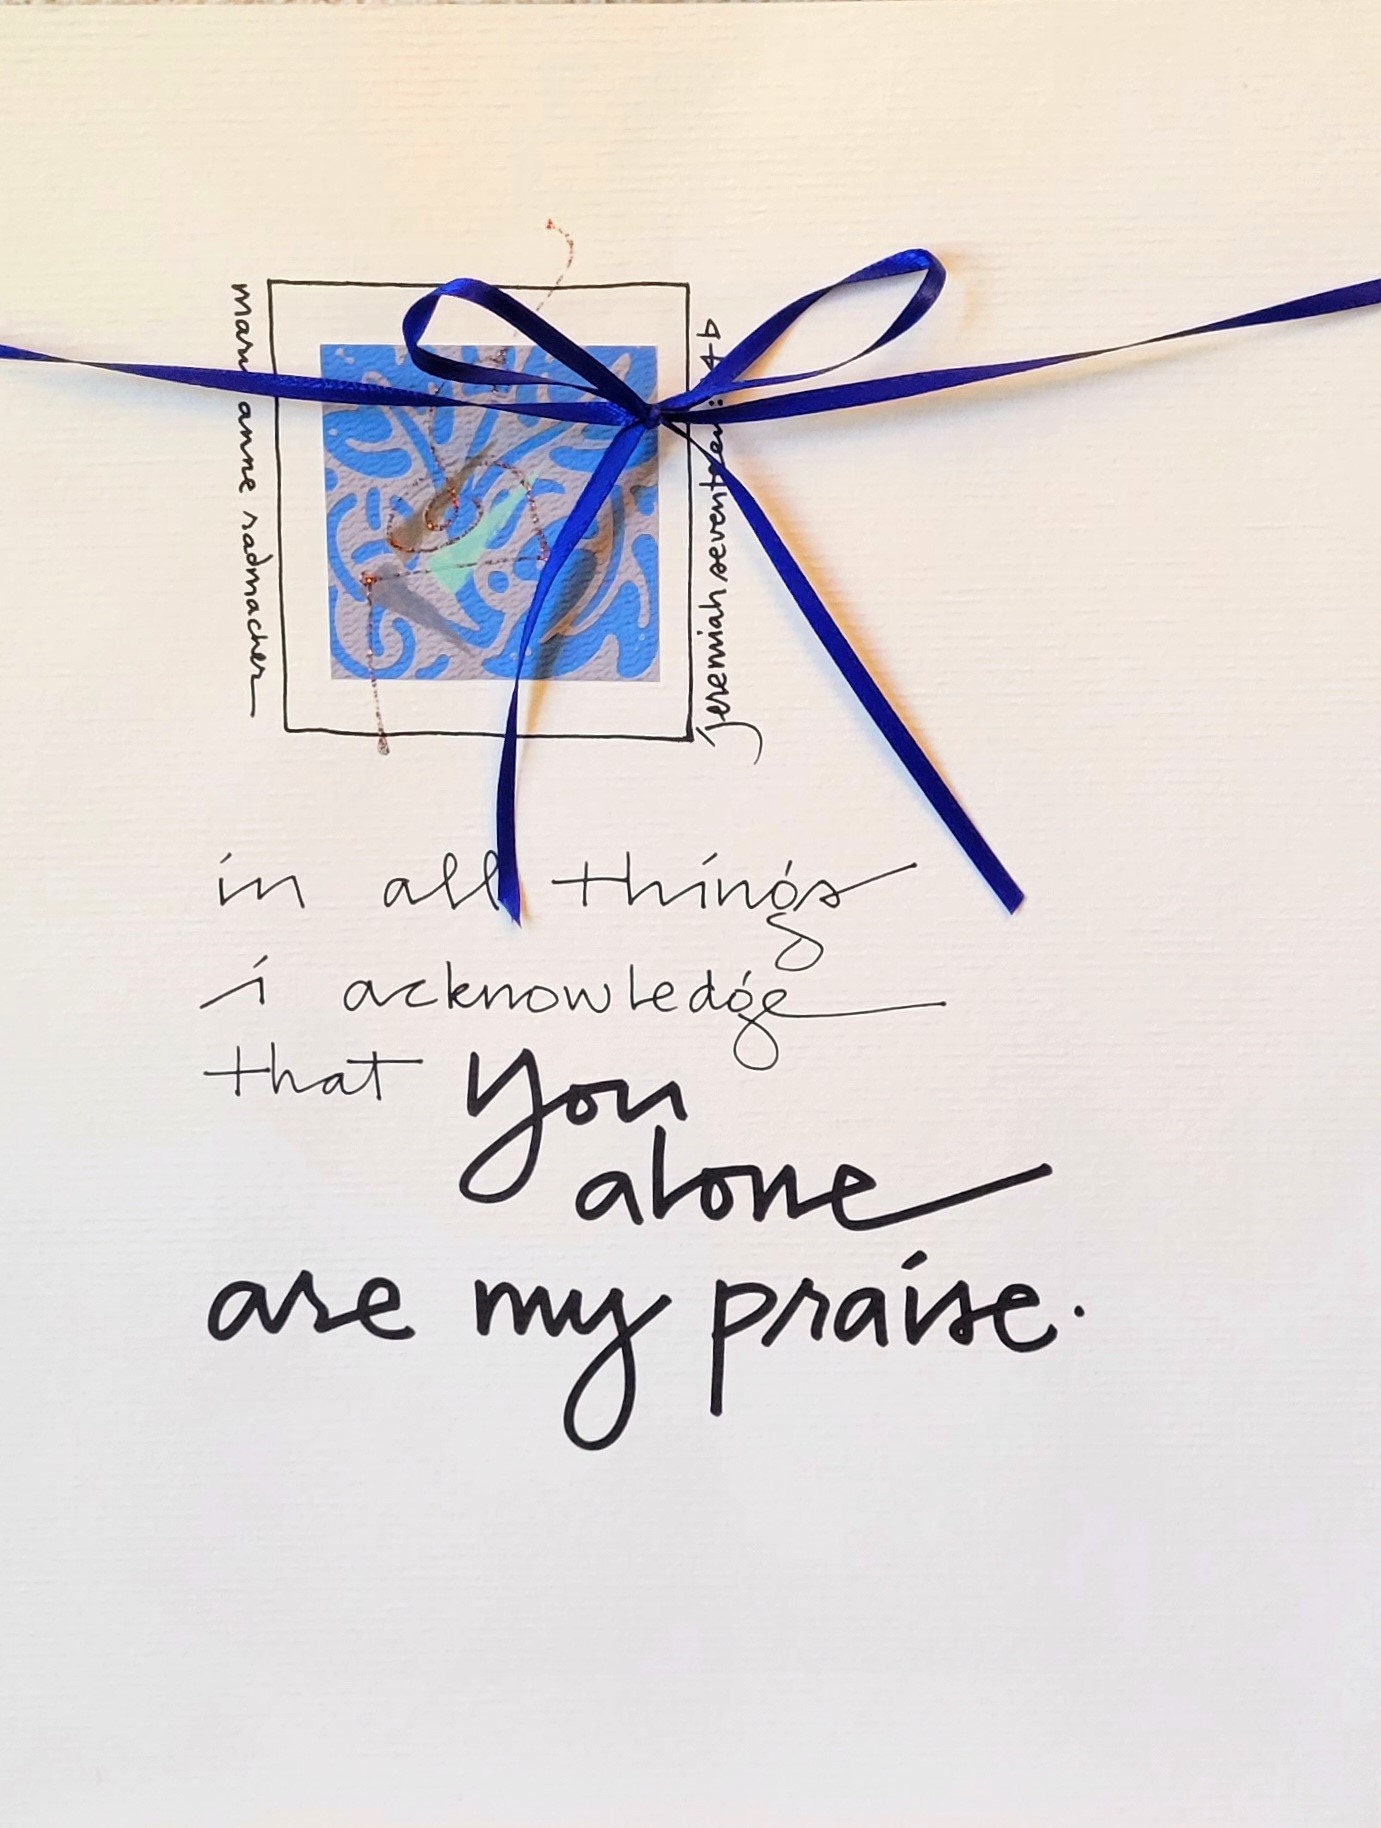 mary anne radmacher
jeremiah seventeen:
in all things
i acknowledge
that you
alone
are my praise.